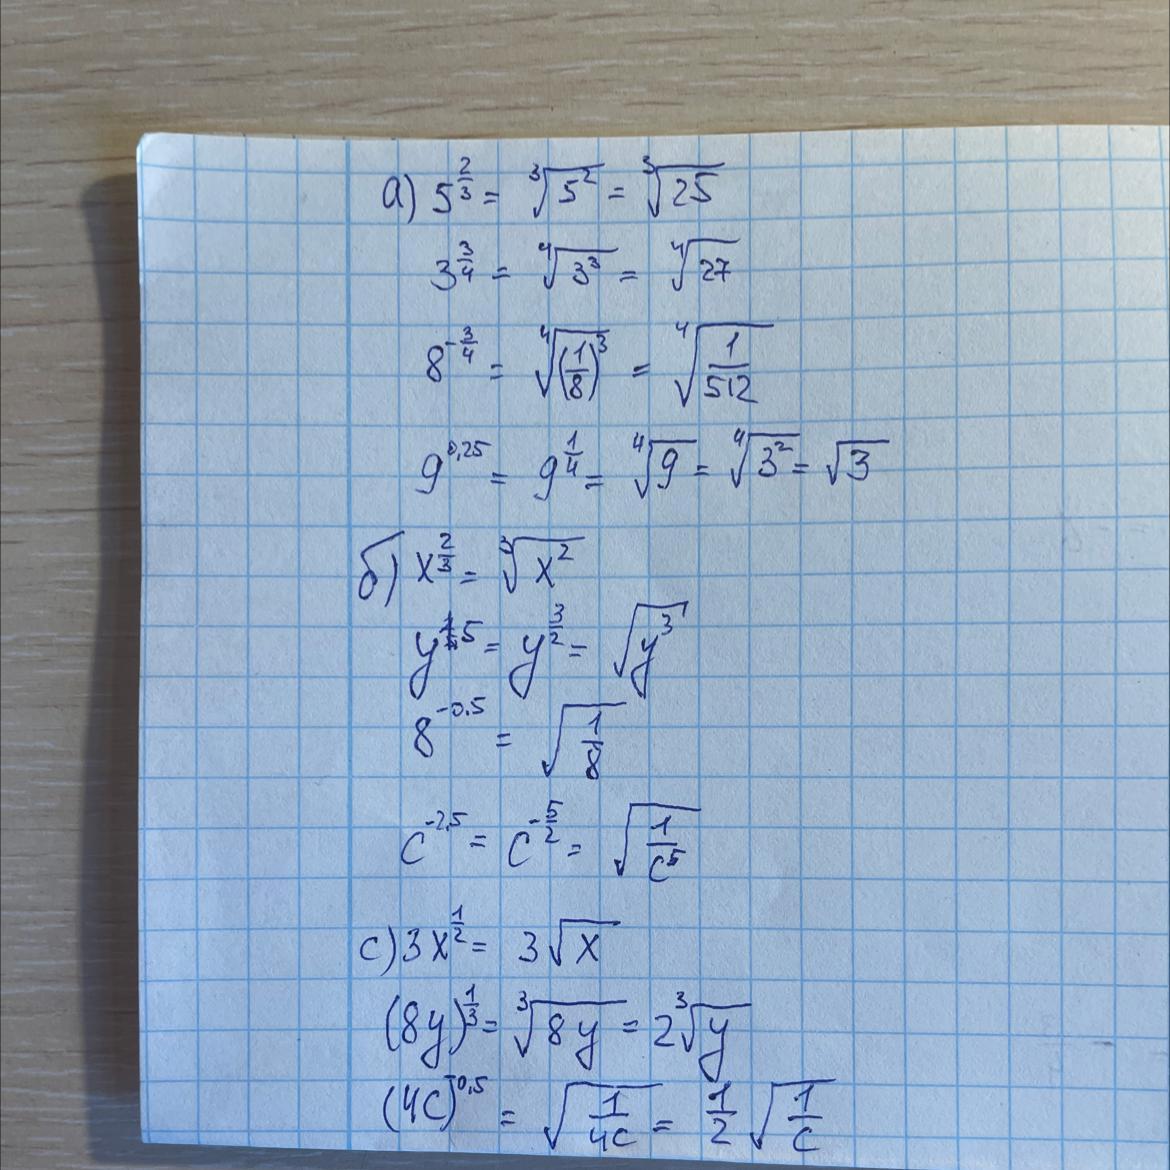 а) 5^{2/3} = ∛(5²) = ∛25
3^{3/4} = ∜(3³) = ∜27
8^{-3/4} = ∜((1/8)³) = ∜(1/512)
9^{0,25} = 9^{1/4} = ∜9 = ∜(3²) = √3
б) x^{2/3} = ∛(x²)
y^{1,5} = y^{3/2} = √(y³)
8^{-0.5} = √(1/8)
c^{-2,5} = c^{-5/2} = √(1/c⁵)
с) 3x^{1/2} = 3√x
(8y)^{1/3} = ∛(8y) = 2∛y
(4c)^{-0,5} = √(1/4c) = 1/2 √(1/c)